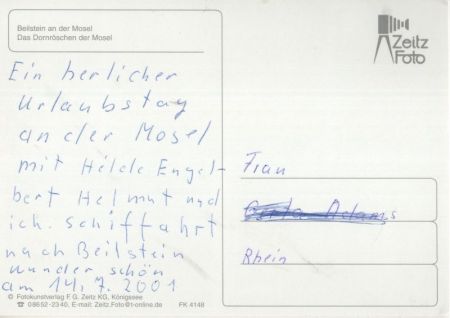 Beilstein an der Mosel
Das Dornröschen der Mosel
Zeitz
Foto
Ein herlicher
Urlaubstag
an der Mosel
mit Hilde Engel-
bert Helmut und
ich. Schiffahrt
nach Beilstein
wunder schön
am 14. 7. 2001
Frau
Adams
Rhein
© Fotokunstverlag F. G. Zeitz KG, Königssee
☎ 08652-2340, E-Mail: Zeitz.Foto@t-online.de FK 4148